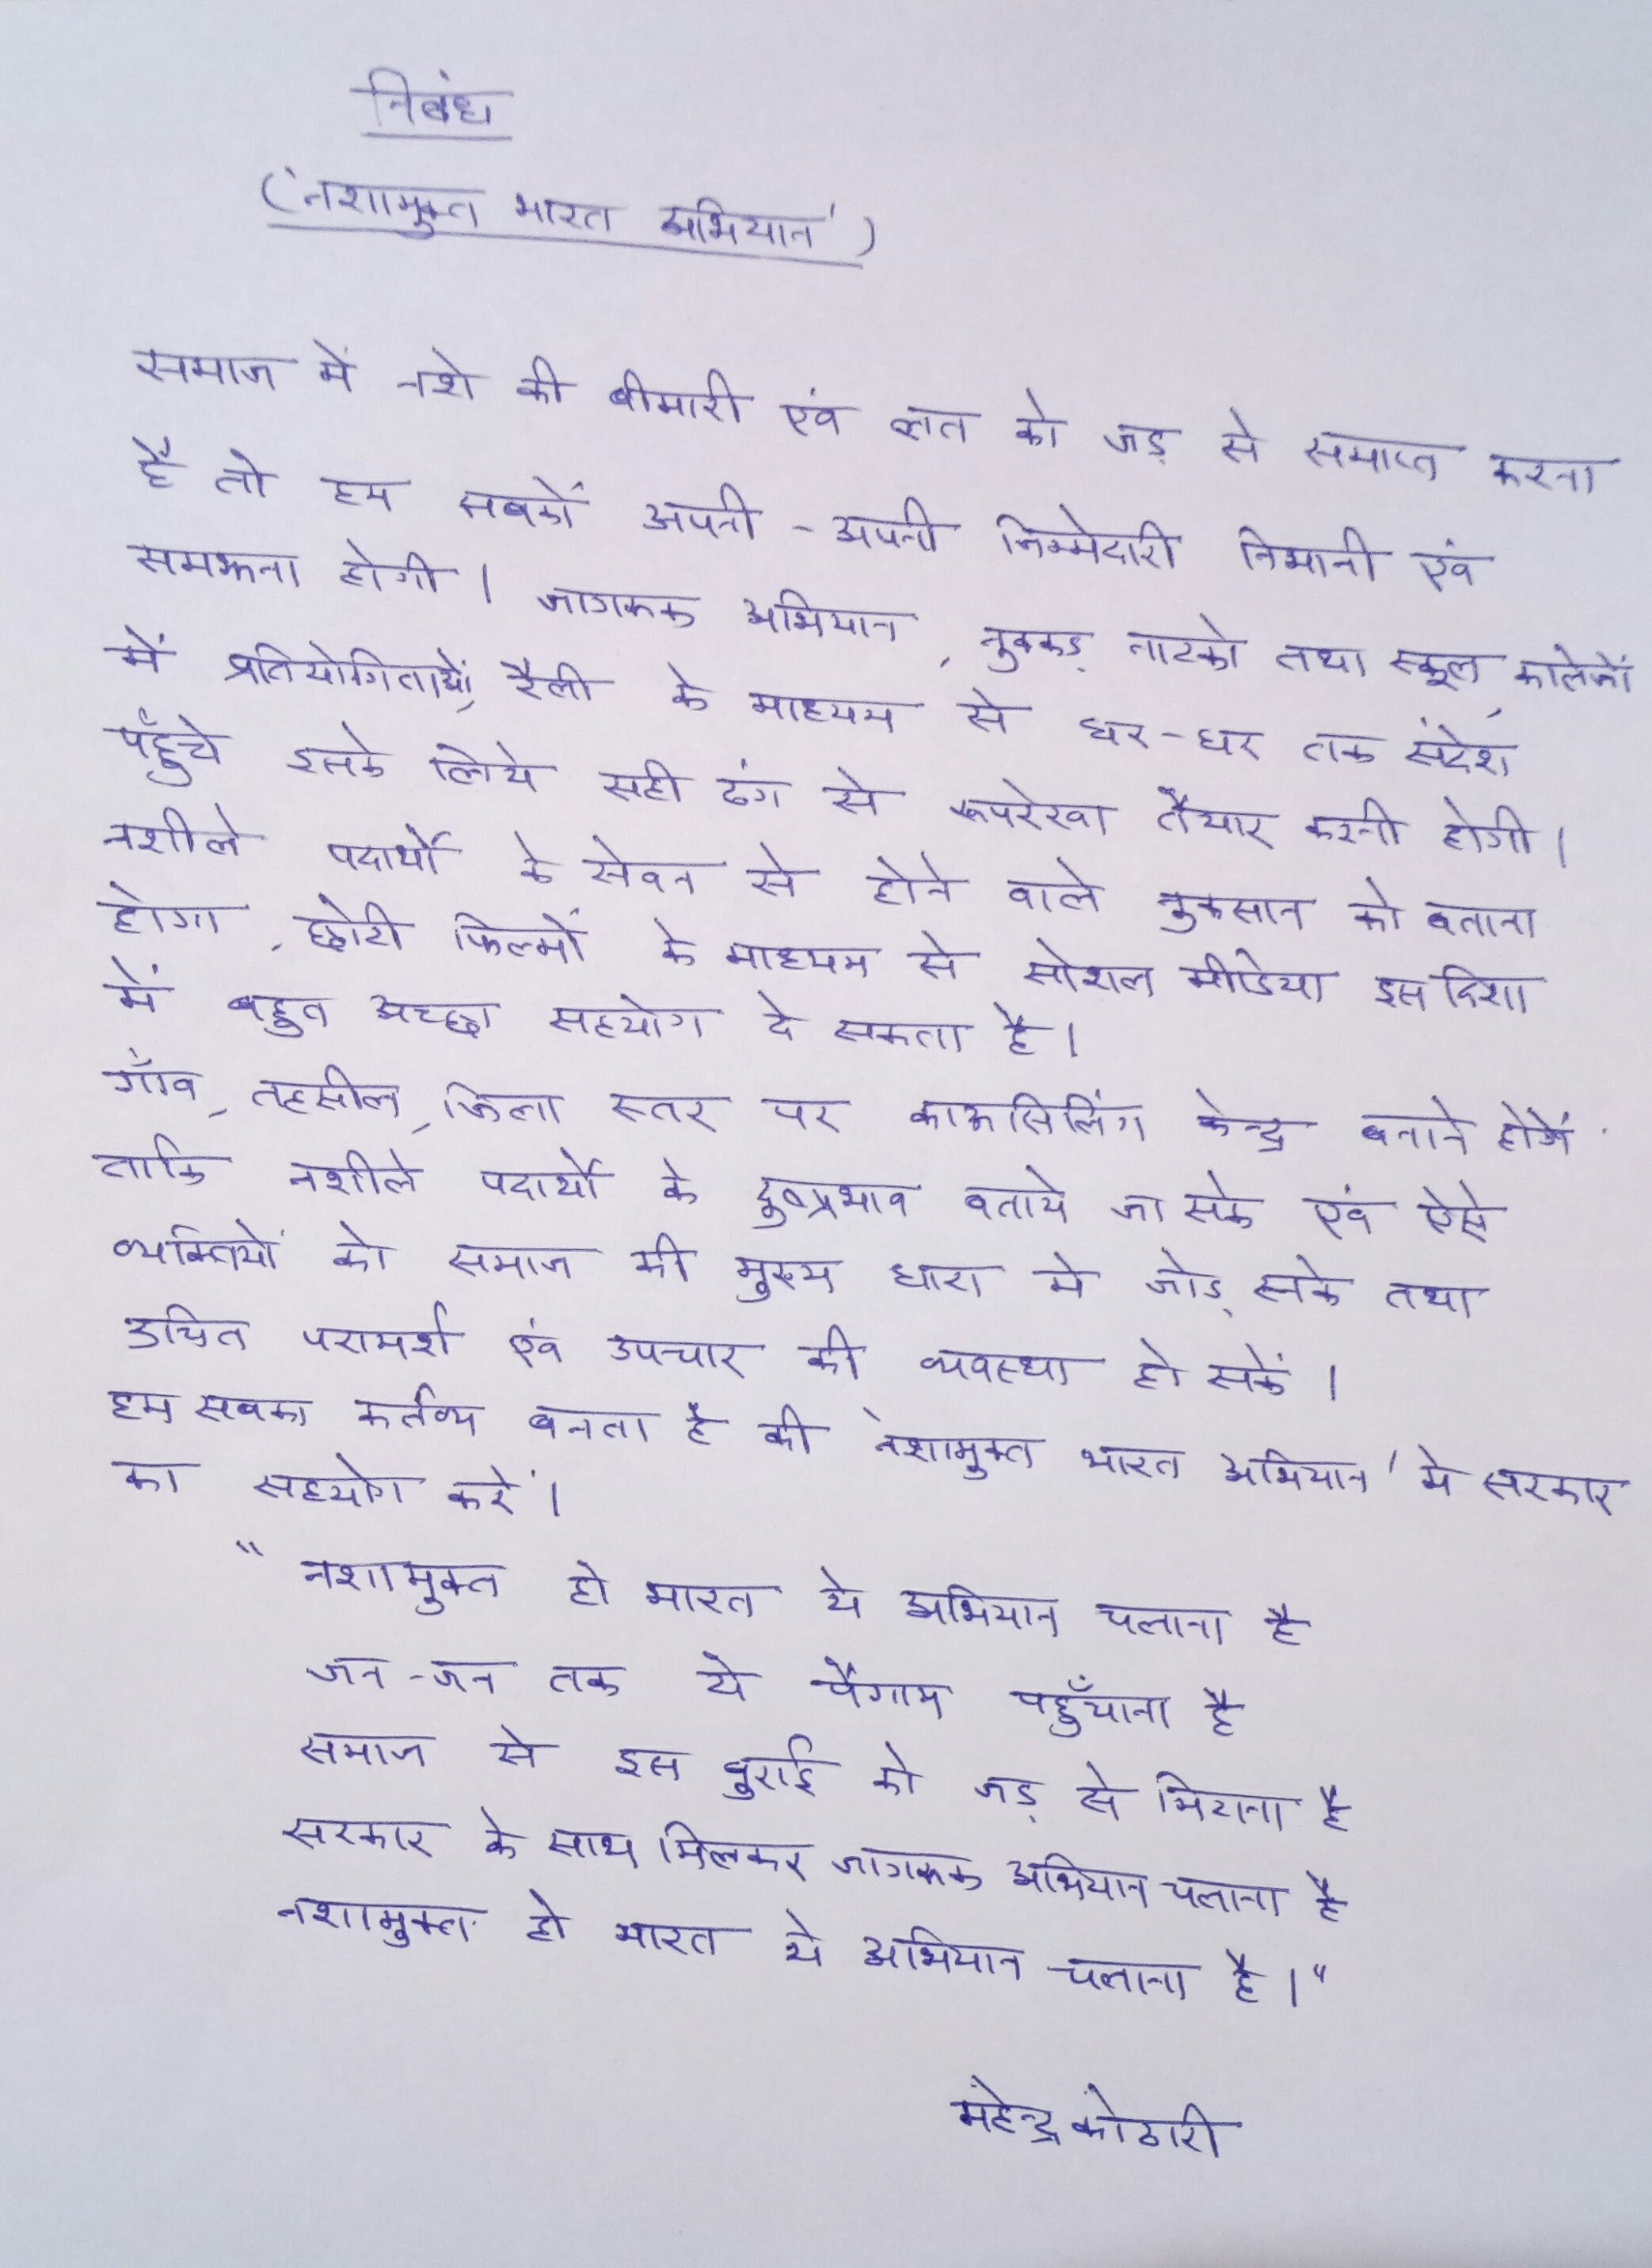 निबंध
('नशामुक्त भारत अभियान')
समाज में नशे की बीमारी एंव लत को जड़ से समाप्त करना
है तो हम सबकों अपनी - अपनी जिम्मेदारी निभानी एंव
समझना होगी । जागरूक अभियान , नुक्कड़ नाटको तथा स्कूल, कालेजों
में प्रतियोगितायों, रैली के माध्यम से घर-घर तक संदेश
पहुँचे इसके लिये सही ढंग से रूपरेखा तैयार करनी होगी ।
नशीले पदार्थो के सेवन से होने वाले नुकसान को बताना
होगा , छोटी फिल्मों के माध्यम से सोशल मीडिया इस दिशा
में बहुत अच्छा सहयोग दे सकता है ।
गाँव, तहसील, जिला स्तर पर काऊसिलिंग केन्द्र बनाने होगें
ताकि नशीले पदार्थो के दुष्प्रभाव बताये जा सके एंव ऐसे
व्यक्तियों को समाज की मुख्य धारा मे जोड़ सके तथा
उचित परामर्श एंव उपचार की व्यवस्था हो सकें ।
हम सबका कर्तव्य बनता है की 'नशामुक्त भारत अभियान' मे सरकार
का सहयोग करें ।
" नशामुक्त हो भारत ये अभियान चलाना है
जन -जन तक ये पैंगाम पहुँचाना है
समाज से इस बुराई को जड़ से मिटाना है
सरकार के साथ मिलकर जागरूक अभियान चलाना है
नशामुक्त हो भारत ये अभियान चलाना है ।"
महेन्द्र कोठारी